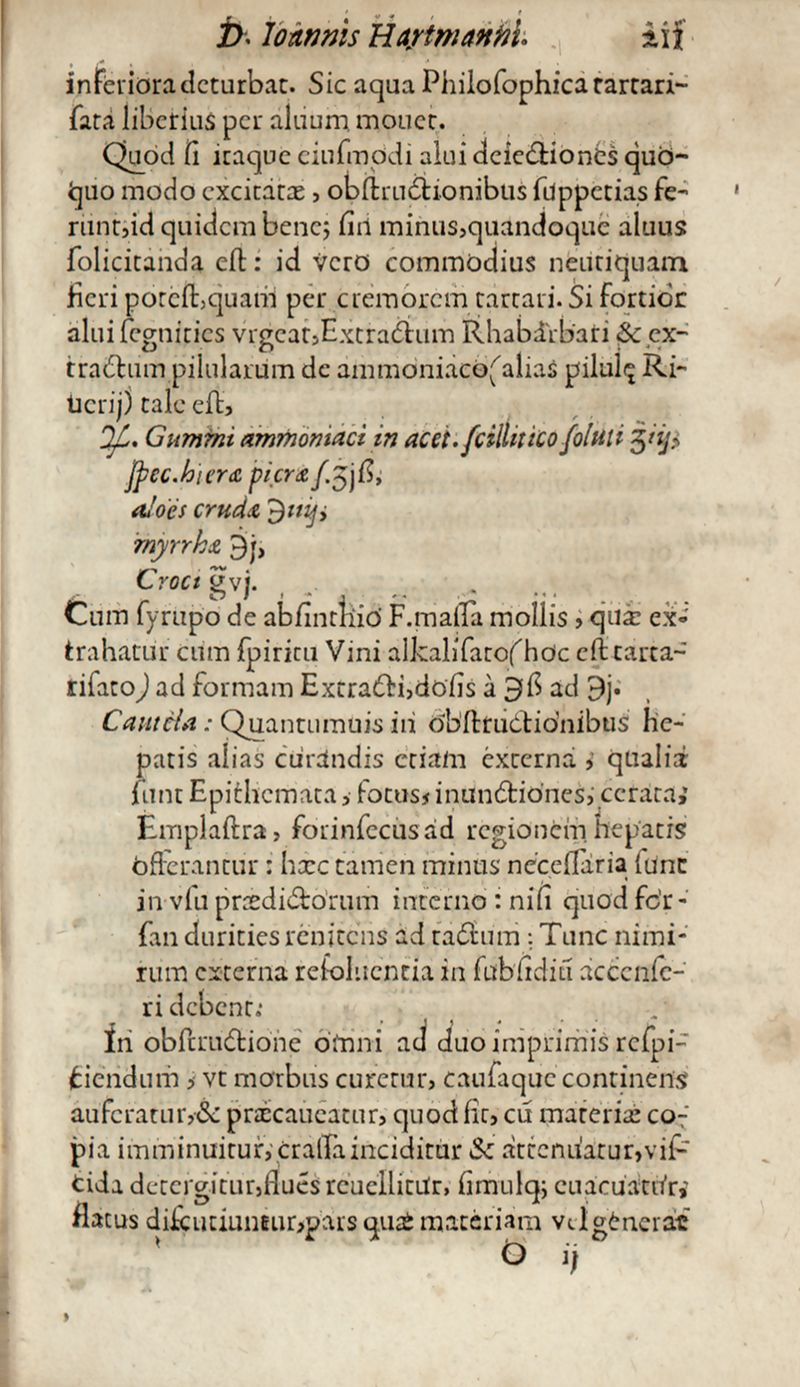 D. Ioannis Hartmanni. 211
inferiora deturbat. Sic aqua Philoſophica tartari-
ſata liberius per aluum mouet.
Quod ſi itaque eiuſmodi alui deiectiones quo-
quo modo excitatæ, obſtructionibus ſuppetias fe-
runt,id quidem bene; ſin minus,quandoque aluus
ſolicitanda eſt: id vero commodius neutiquam
fieri poteſt,quam per cremorem tartari. Si fortior
alui ſegnities vrgeat,Extractum Rhabarbari & ex-
tractum pilularum de ammoniaco(alias pilulę Ri-
uerij) tale eſt,
℞. Gummi ammoniaci in acet. ſcillitico ſoluti ʒiij,
ſpec.hieræ picræ ſ.ʒjß,
aloes crudæ ℈iiij,
myrrhæ ℈j,
Croci g̃vj.
Cum ſyrupo de abſinthio F.maſſa mollis, quæ ex-
trahatur cum ſpiritu Vini alkaliſato(hoc eſt tarta-
riſato) ad formam Extracti,doſis à ℈ß ad ℈j.
Cautela: Quantumuis in obſtructionibus he-
patis alias curandis etiam externa, qualia
ſunt Epithemata, fotus, inunctiones, cerata,
Emplaſtra, forinſecus ad regionem hepatis
offerantur: hæc tamen minus neceſſaria ſunt
in vſu prædictorum interno: niſi quod for-
ſan durities renitens ad tactum: Tunc nimi-
rum externa reſoluentia in ſubſidiũ accenſe-
ri debent.
In obſtructione omni ad duo imprimis reſpi-
ciendum, vt morbus curetur, cauſaque continens
auferatur,& præcaueatur, quod fit, cũ materiæ co-
pia imminuitur, craſſa inciditur & attenuatur,viſ-
cida detergitur,flues reuellitur, ſimulq; euacuatur,
flatus diſcutiuntur,pars quæ materiam vel generat
O ij